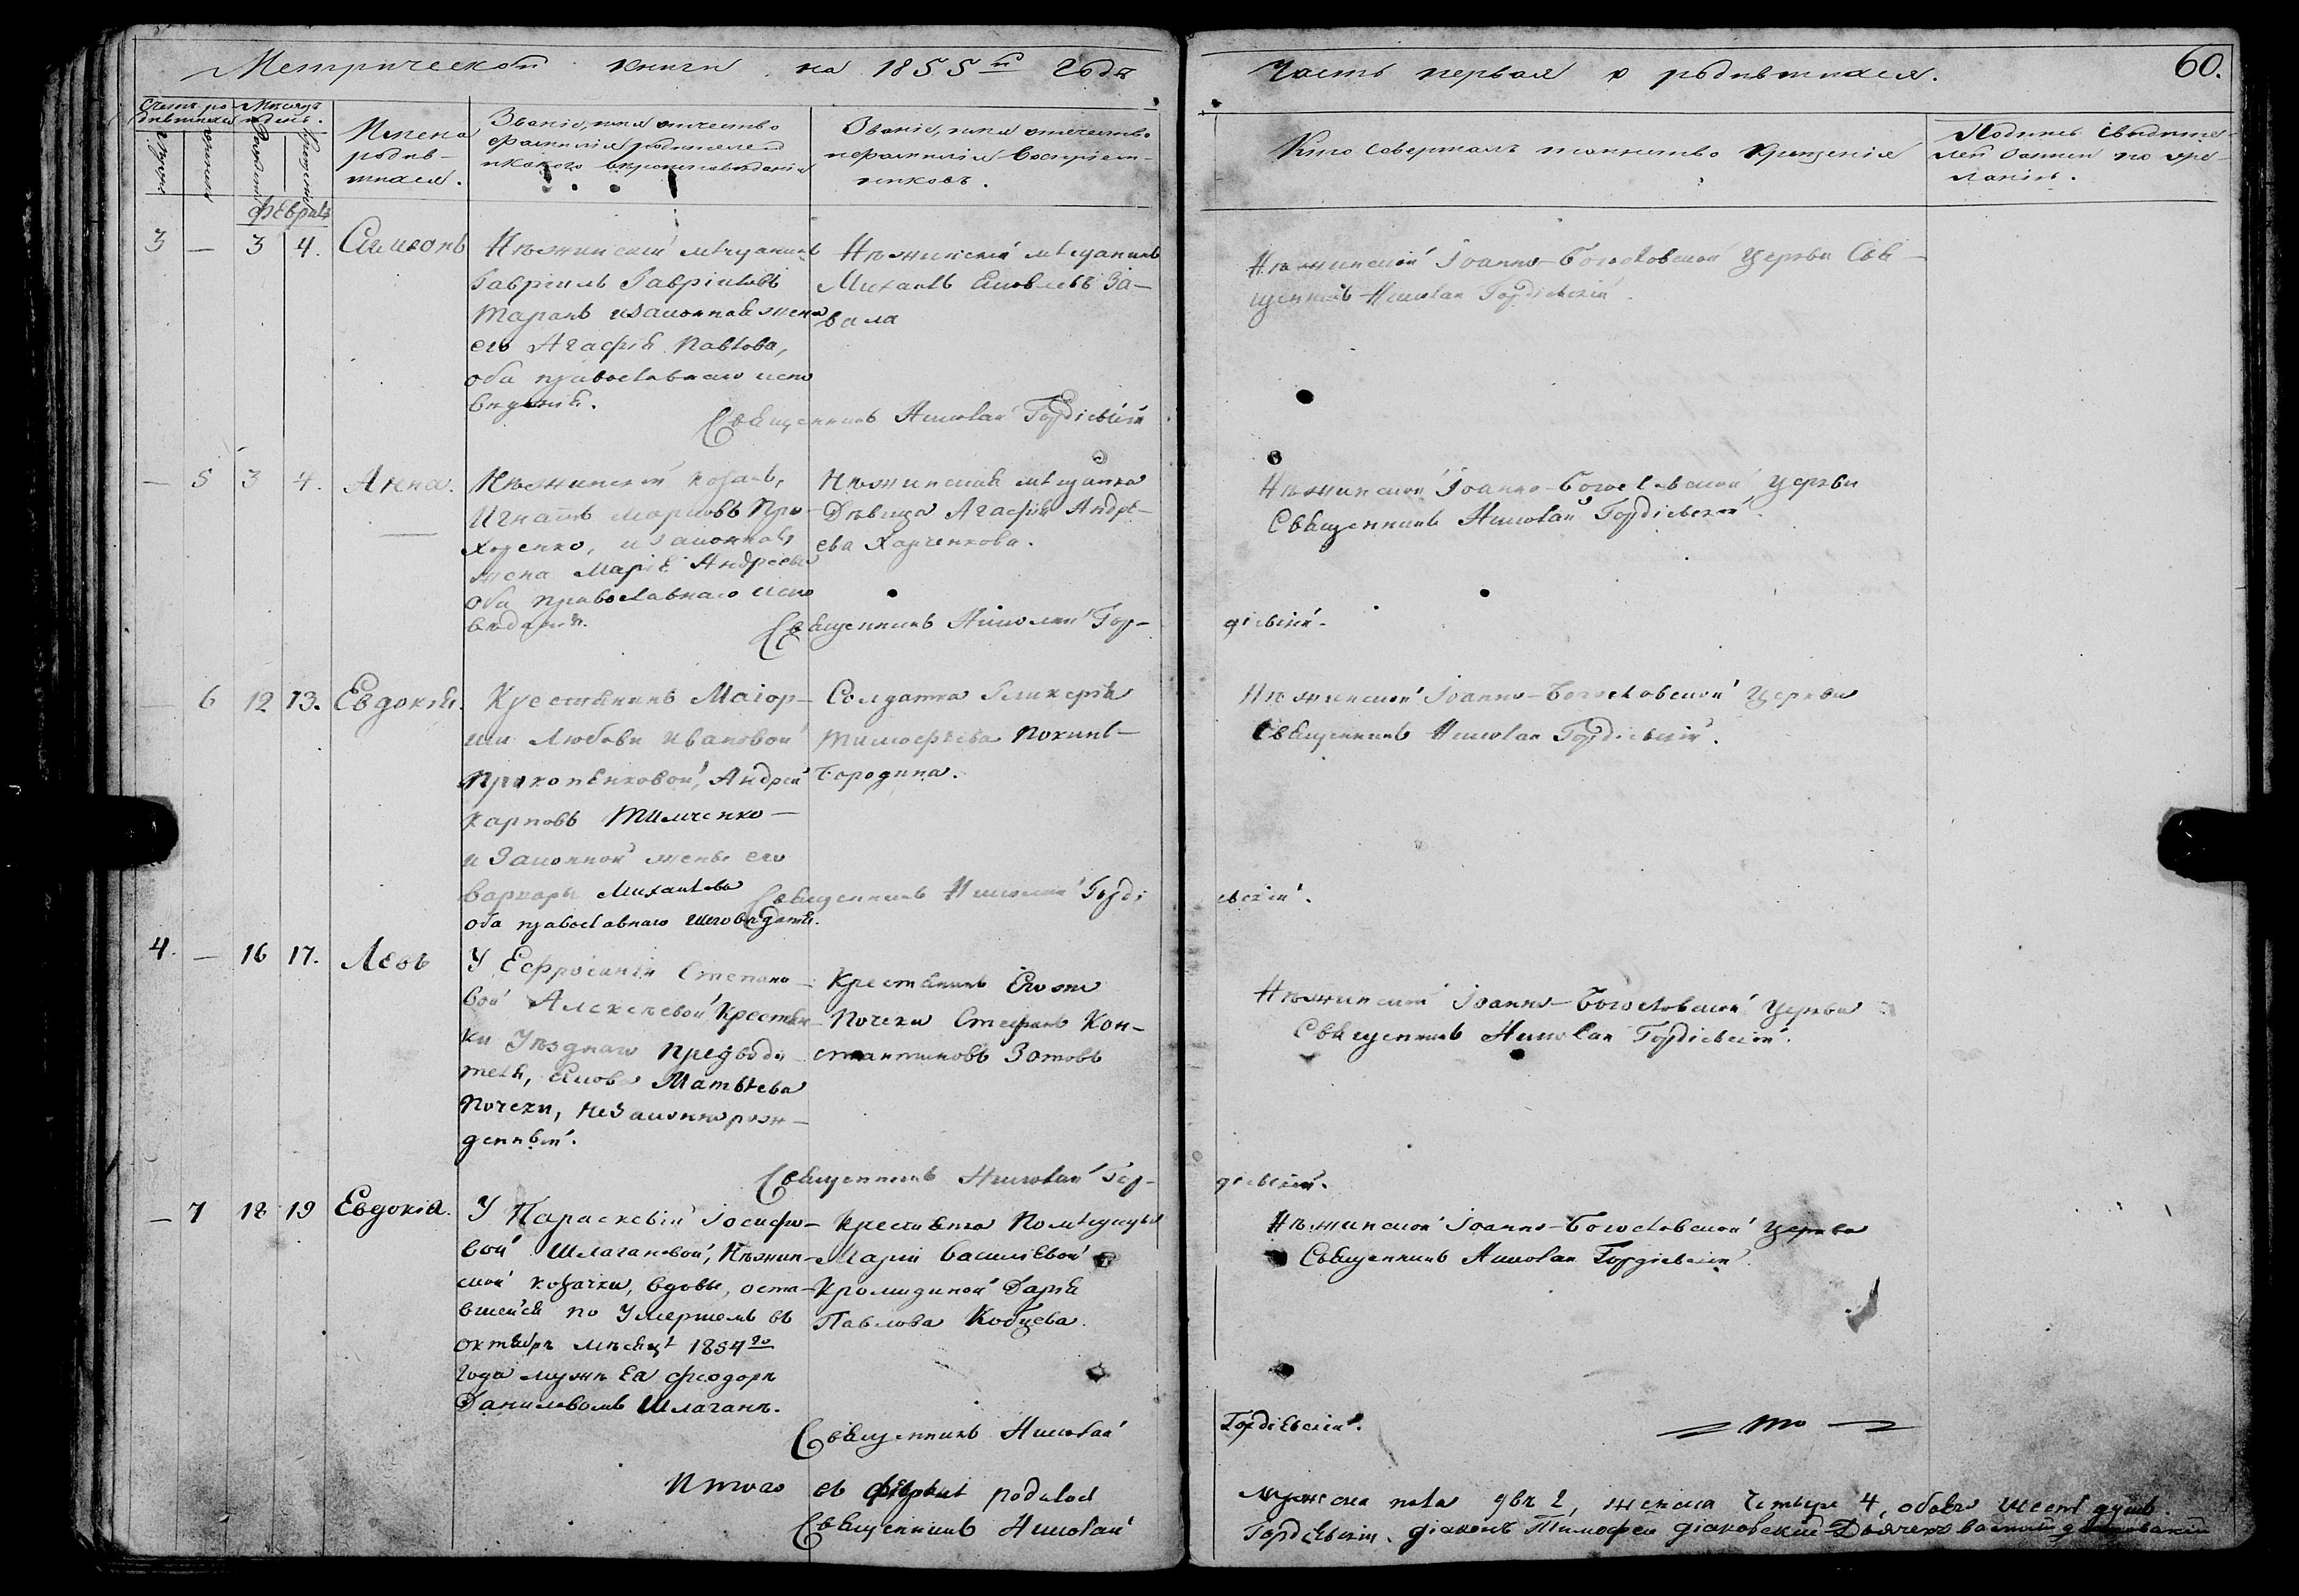 Метрической книги на 1855й Годъ
Часть первая о родившихся.
60.
Счетъ ро-
дившихся
Мѣсяцъ
и день.
Имена
родив-
шихся.
Званіе, имя отчество
фамилія родителей
и какого вѣроисповѣданія
Званіе, имя отчество
и фамилія Воспріем-
никовъ.
Кто Совершалъ таинство Крещенія
Подпись Свидѣте-
лей записи по же-
ланію.
февраль
3 — 3 4. Симеонъ
Нѣжинскій мѣщанинъ
Гавріилъ Гавріиловъ
Таранъ и законная жена
его Агафія Павлова,
оба православнаго испо
вѣданія.
Нѣжинскій мѣщанинъ
Михаилъ Яковлевъ За-
вала
Нѣжинской Іоанно-Богословской Церкви Свя-
щенникъ Николай Гордіевскій.
Священникъ Николай Гордіевскій
— 5 3 4. Анна.
Нѣжинскій козакъ,
Игнатъ Марковъ Про-
хоренко, и законная
жена Марія Андреева
оба православнаго испо
вѣданія.
Нѣжинская мѣщанка
Дѣвица Агафія Андре-
ева Харченкова.
Нѣжинской Іоанно-Богословской Церкви
Священникъ Николай Гордіевскій.
Священникъ Николай Гор-
діевскій.
— 6 12 13. Евдокія.
Крестьянинъ Маіор-
ши Любови Ивановой
Прокопенковой, Андрей
Карповъ Тимченко —
и Законной жены его
Варвары Михайлова
оба православнаго исповѣданія.
Солдатка Гликерія
Тимофѣева
Бородина.
Нѣжинской Іоанно-Богословской Церкви
Священникъ Николай Гордіевскій.
Священникъ Николай Горді
евскій.
4. — 16 17. Левъ
У Ефросиніи Степано-
вой Алексѣевой Крестьян-
ки Уѣзднаго Предводи-
теля, Якова Матвѣева
Почеки, незаконнорож-
денный.
Крестьянинъ Егоже
Почеки Стефанъ Кон-
стантиновъ Зотовъ
Нѣжинской Іоанно-Богословской Церкви
Священникъ Николай Гордіевскій.
Священникъ Николай Гор-
діевскій.
— 7 18 19 Евдокія.
У Параскевіи Іосифо-
вой Шлагановой, Нѣжин-
ской козачки, вдовы, оста-
вшейся по Умершемъ въ
октябрѣ мѣсяцѣ 1854го
года мужѣ Ея Феодорѣ
Даниловомъ Шлаганъ.
Крестьянка Помѣщицы
Маріи Василіевой
Кромидиной Дарія
Павлова Кобцева.
Нѣжинской Іоанно-Богословской Церкви
Священникъ Николай Гордіевскій
Священникъ Николай
Гордіевскій.
Итого въ февралѣ родилось
мужска пола два 2, женска Четыре 4, обоего шесть душъ.
Священникъ Николай
Гордіевскій. діаконъ Тимофей діаковскій Дьячекъ